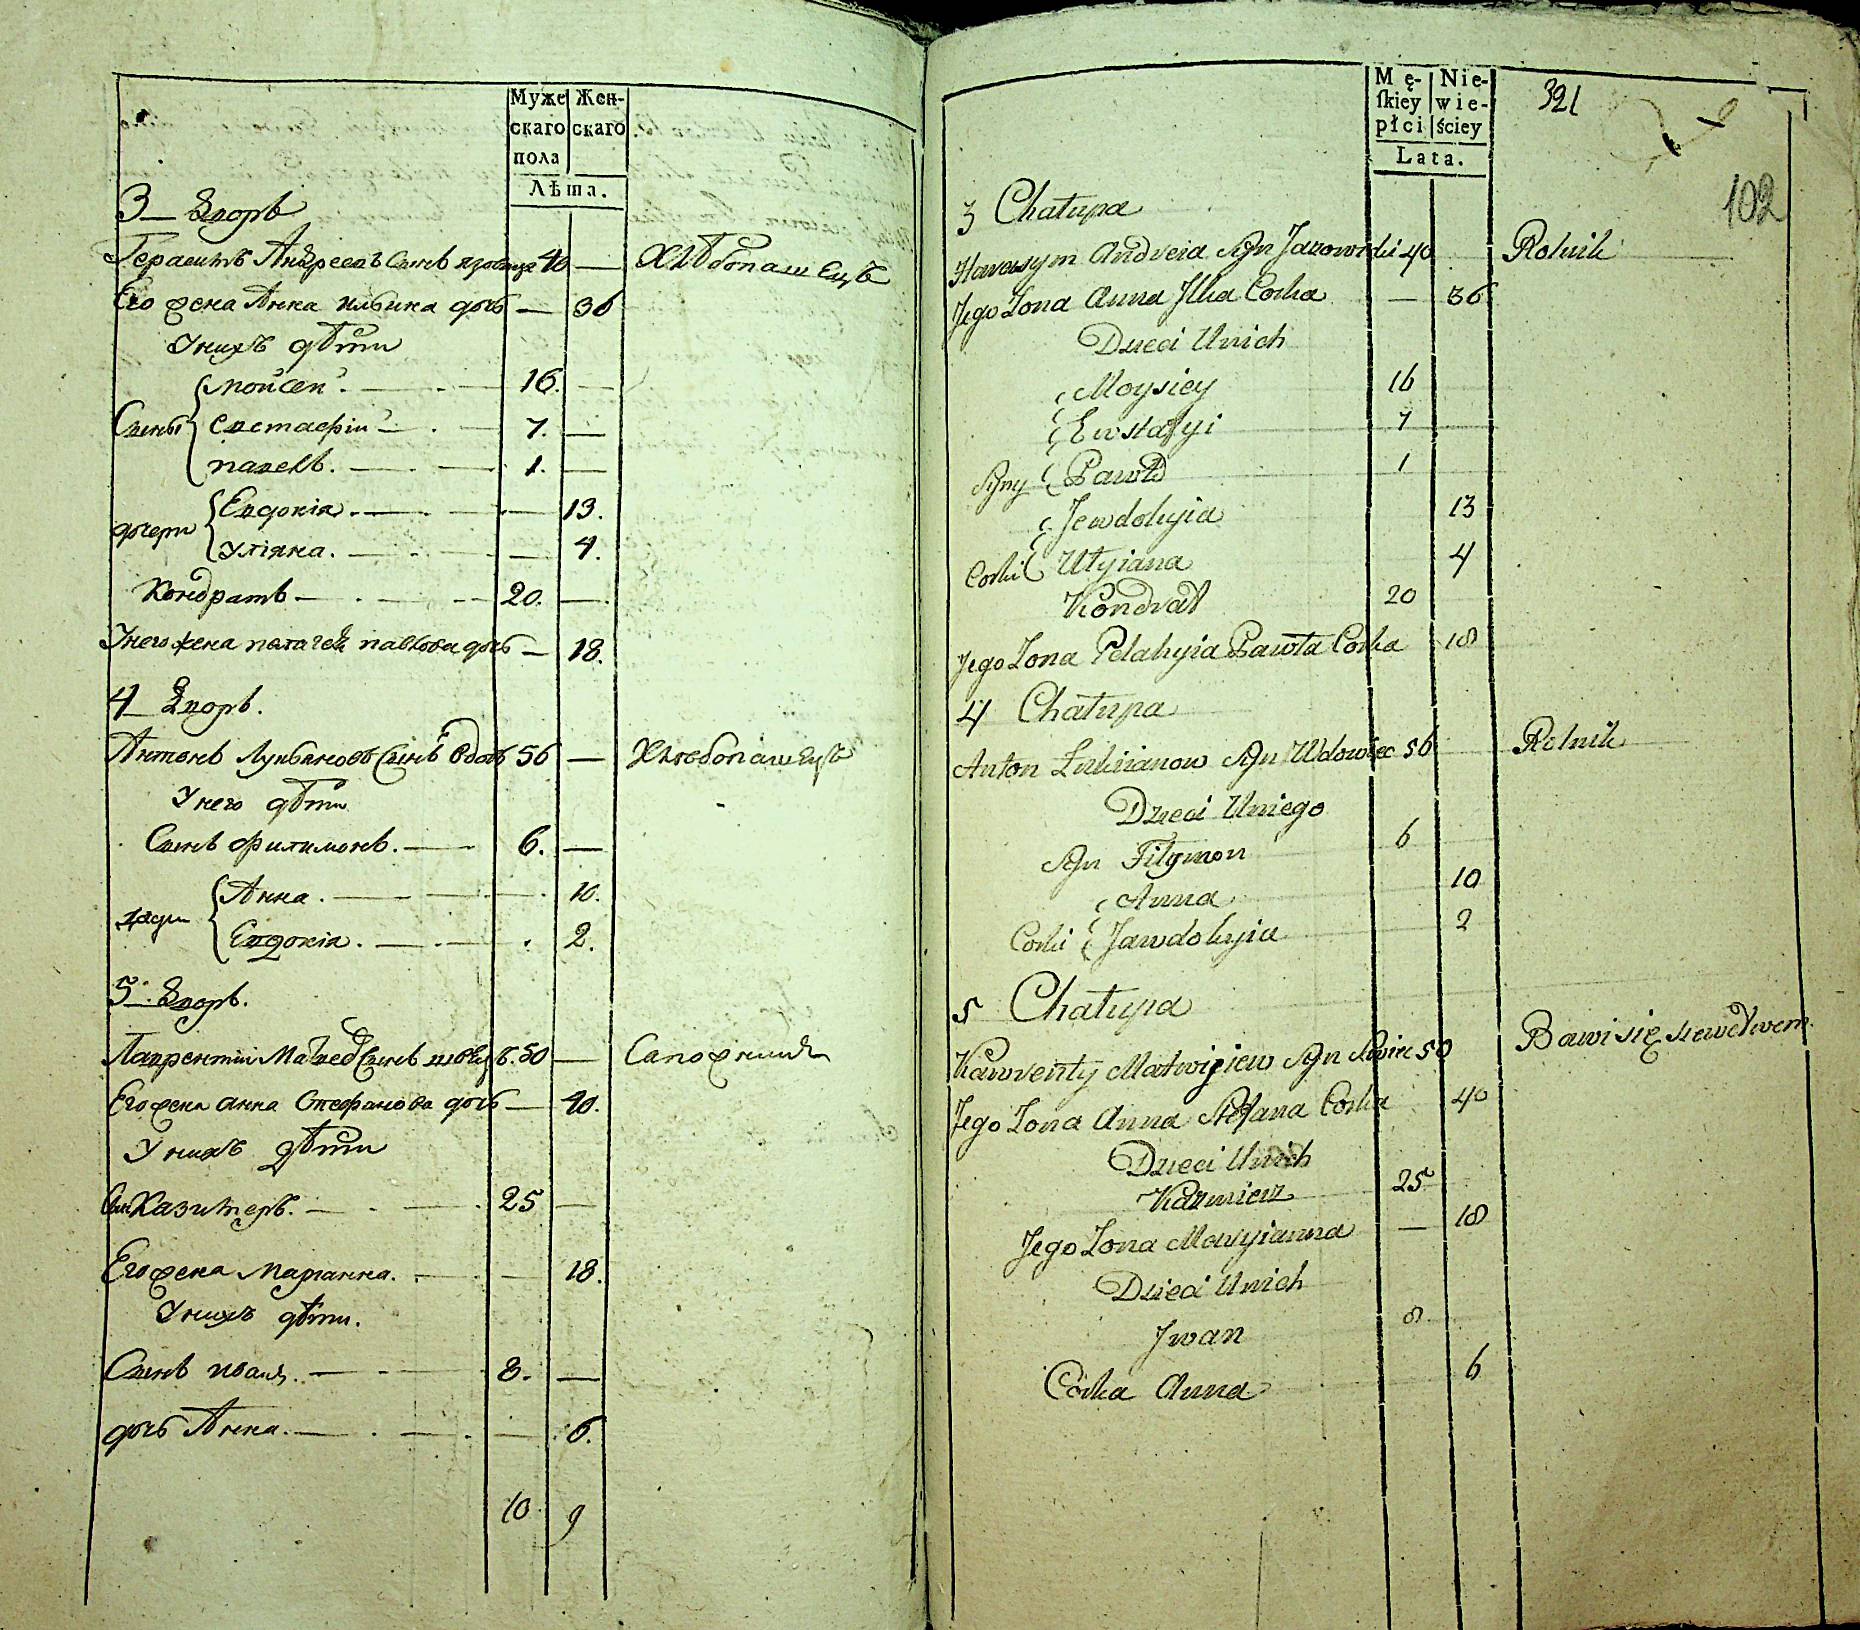 Муже Жен-
скаго скаго
пола
Лѣта.
3 Дворъ
Герасимъ Андреевъ сынъ 40 — Хлѣбопашецъ
Его жена Анна Ильина дочь — 36
У нихъ дѣти
Мойсей — 16. —
Сыны Евстафій — 7. —
Павелъ. — 1. —
Евдокія. — 13.
дочери Уліяна. — 4.
Кондратъ — 20. —
У него жена Палагея Павлова дочь — 18.
4 Дворъ.
Антонъ Лукьяновъ сынъ вдовъ 56 — Хлебопашецъ
У него дѣти
Сынъ Филимонъ. — 6. —
Анна. — 10.
Евдокія. — 2.
5 Дворъ.
Лаврентій Матвеевъ сынъ швецъ. 50 — Сапожникъ
Его жена Анна Стефанова дочь — 40.
У нихъ дѣти
Сын Казимеръ. — 25 —
Его жена Маріанна. — 18.
У нихъ дѣти.
Сынъ Иванъ. — 8. —
дочь Анна. — 6.
10 9
Mę- Nie-
ſkiey wie-
płci ściey
Lata.
321
102
3 Chałupa
Harasym Andreia Syn Jarowski 40 Rolnik
Jego Zona Anna Ilka Corka — 36
Dzieci Unich
Moysiey 16
Ewstafyi 7
Syny Pawło 1
Jewdokyia 13
Corki Ulyiana 4
Kondrat 20
Jego Zona Pelahyia Pawła Corka 18
4 Chałupa
Anton Łukiianow Syn Wdowiec 56 Rolnik
Dzieci Uniego
Syn Fiłymon 6
Anna 10
Corki Jawdokyia 2
5 Chałupa
Matwijiew Syn Szwiec 50 Bawi się szewctwem
Jego Zona Anna Stefana Corka 40
Dzieci Unich
Kazmierz 25
Jego Zona Maryianna — 18
Dzieci Unich
Jwan 8
Córka Anna 6